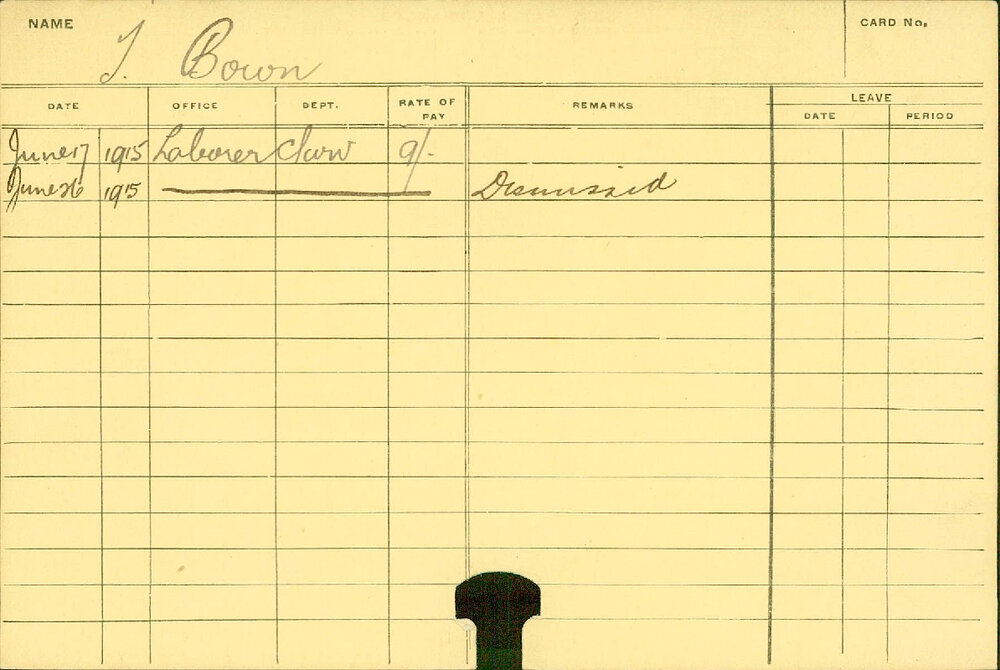 NAME T. Bown CARD No.
DATE OFFICE DEPT. RATE OF PAY REMARKS LEAVE
DATE PERIOD
June 17 1915 Laborer 9/-
June 26 1915 Dismissed